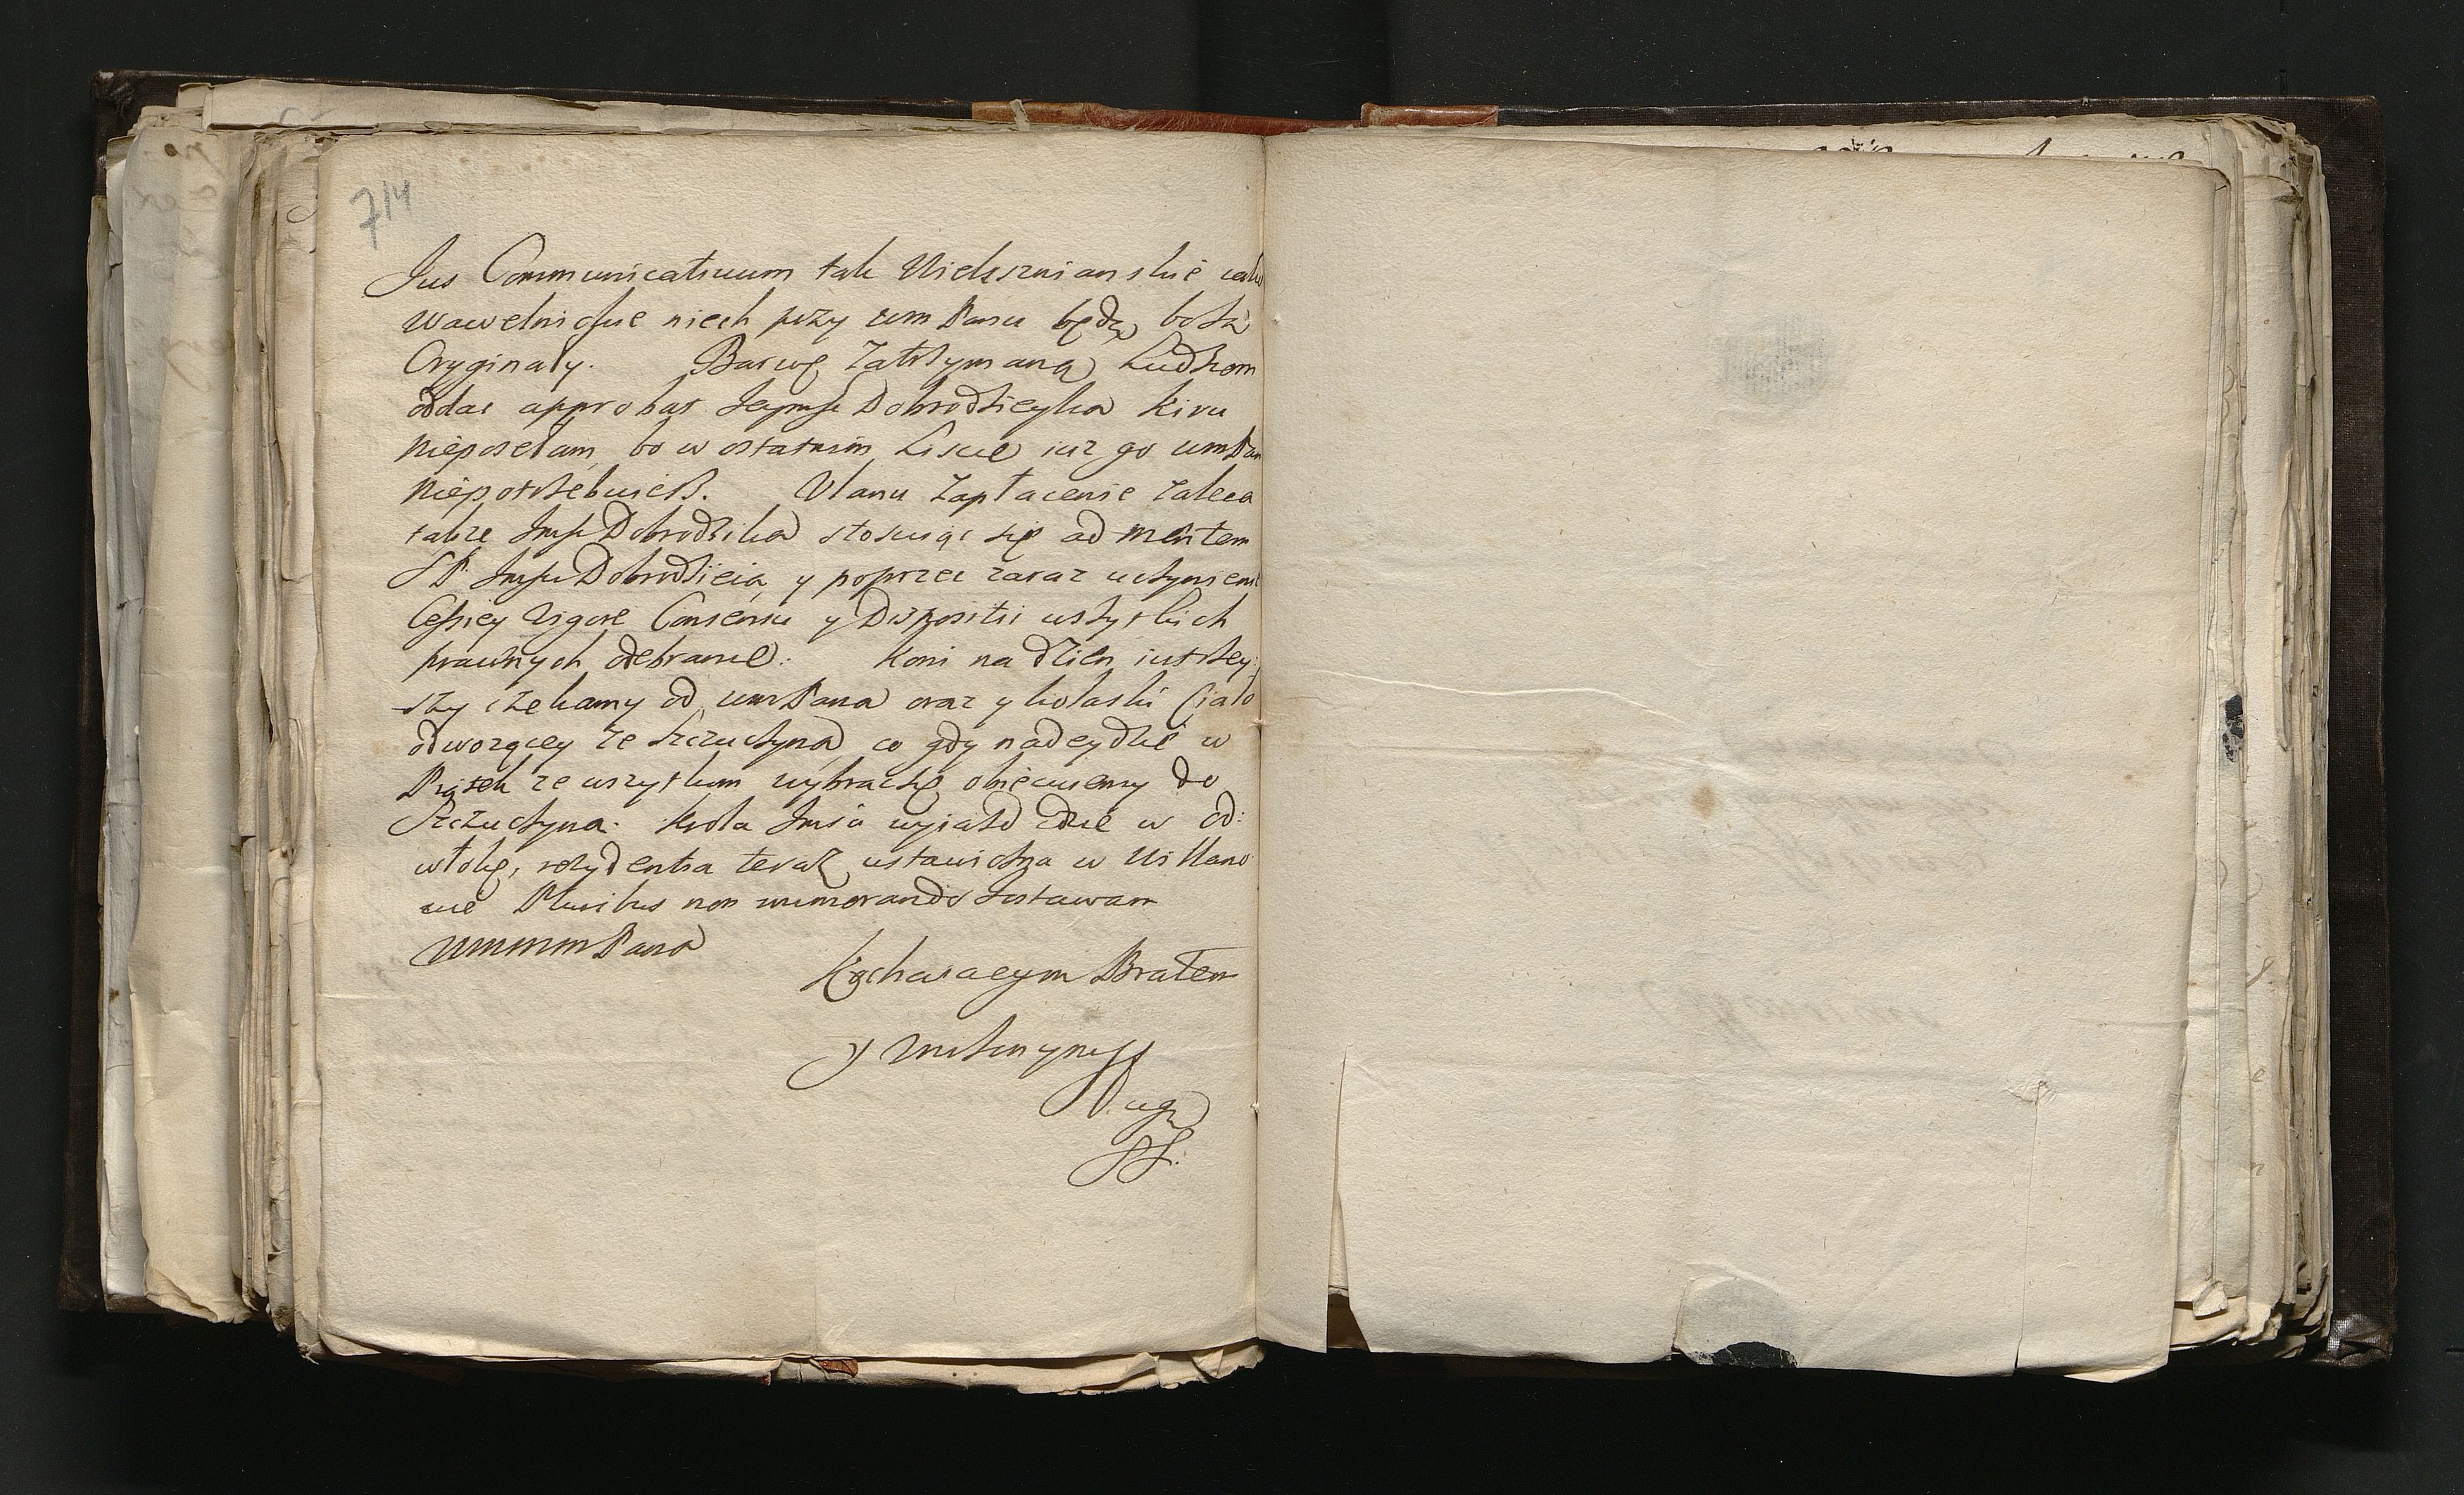 714
Jus Communicativum tak Wielicznianskie
Wawelnickie niech przy wm Panu będą bo są
Oryginały. Barwę zatrzymaną Ludziom
oddac approbat Jeymsc Dobrodzieyka Kiru
nieposełam, bo w ostatnim Liscie iuz go wmPan
niepotrzebuiesz. Ulanu zapłacenie zaleca
takze Jmsc Dobrodzika stosuiąc się ad mentem
SP. Jmsci Dobrodzieia, y poprzec zaraz uczynienie
Cessiey vigore Consensu y Dispositii wszytkich
prawnych odebranie. Koni na dzien iutrzey:
szy czekamy od wmPana oraz y kolaski Ciało
odwozącey ze Szczuczyna, co gdy nadeydzie w
Piątek ze wszytkim wybracsię obiecuiemy do
Szczuczyna. Krola Jmsci wyiazd idzie w od:
włokę, rezydentia teraz ustawiczna w Willano
wie Pluribus non immorando zostawam
WMMMPana
Kochaiacym Bratem
y unizonym
Sługą
SS.